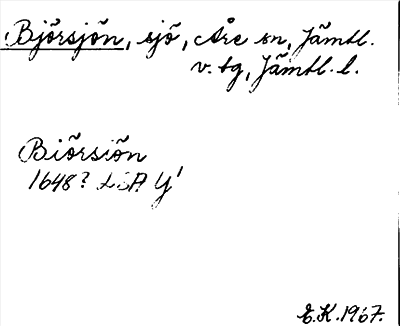 Björsjön, sjö, Åre sn, Jämtl.
v. tg, Jämtl. l.
Biörsiön
1648? LSA Y¹
E.K. 1967.